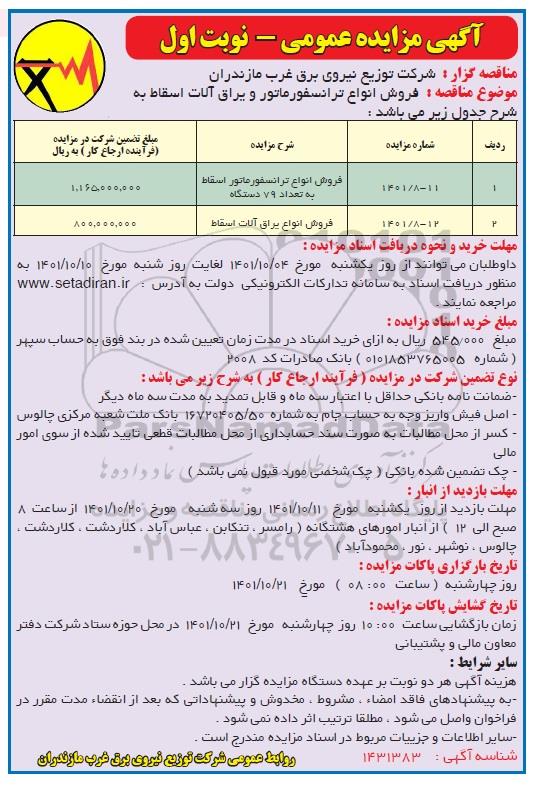 آگهی مزایده عمومی – نوبت اول
مناقصه گزار : شرکت توزیع نیروی برق غرب مازندران
موضوع مناقصه : فروش انواع ترانسفورماتور و یراق آلات اسقاط به
شرح جدول زیر می باشد :
ردیف شماره مزایده شرح مزایده مبلغ تضمین شرکت در مزایده (فرآیند ارجاع کار) به ریال
۱ ۱۴۰۱/۸-۱۱ فروش انواع ترانسفورماتور اسقاط به تعداد ۷۹ دستگاه ۱,۱۶۵,۰۰۰,۰۰۰
۲ ۱۴۰۱/۸-۱۲ فروش انواع یراق آلات اسقاط ۸۰۰,۰۰۰,۰۰۰
مهلت خرید و نحوه دریافت اسناد مزایده :
داوطلبان می توانند از روز یکشنبه مورخ ۱۴۰۱/۱۰/۰۴ لغایت روز شنبه مورخ ۱۴۰۱/۱۰/۱۰ به
منظور دریافت اسناد به سامانه تدارکات الکترونیکی دولت به آدرس : www.setadiran.ir
مراجعه نمایند .
مبلغ خرید اسناد مزایده :
مبلغ ۵۴۵/۰۰۰ ریال به ازای خرید اسناد در مدت زمان تعیین شده در بند فوق به حساب سپهر
( شماره ۰۱۰۱۸۵۳۷۶۵۰۰۵ ) بانک صادرات کد ۲۰۰۸
نوع تضمین شرکت در مزایده ( فرآیند ارجاع کار ) به شرح زیر می باشد :
-ضمانت نامه بانکی حداقل با اعتبار سه ماه و قابل تمدید به مدت سه ماه دیگر
- اصل فیش واریز وجه به حساب جام به شماره ۱۶۷۲۰۴۰۵/۵۰ بانک ملت شعبه مرکزی چالوس
- کسر از محل مطالبات به صورت سند حسابداری از محل مطالبات قطعی تایید شده از سوی امور
مالی
- چک تضمین شده بانکی ( چک شخصی مورد قبول نمی باشد )
مهلت بازدید از انبار :
مهلت بازدید از روز یکشنبه مورخ ۱۴۰۱/۱۰/۱۱ روز سه شنبه مورخ ۱۴۰۱/۱۰/۲۰ از ساعت ۸
صبح الی ۱۲ ) از انبار امورهای هشتگانه ( رامسر ، تنکابن ، عباس آباد ، کلاردشت ، کلاردشت ،
چالوس ، نوشهر ، نور ، محمودآباد )
تاریخ بارگزاری پاکات مزایده :
روز چهارشنبه ( ساعت ۰۰: ۰۸ ) مورخ ۱۴۰۱/۱۰/۲۱
تاریخ گشایش پاکات مزایده :
زمان بازگشایی ساعت ۰۰: ۱۰ روز چهارشنبه مورخ ۱۴۰۱/۱۰/۲۱ در محل حوزه ستاد شرکت دفتر
معاون مالی و پشتیبانی
سایر شرایط :
هزینه آگهی هر دو نوبت بر عهده دستگاه مزایده گزار می باشد .
-به پیشنهادهای فاقد امضاء ، مشروط ، مخدوش و پیشنهاداتی که بعد از انقضاء مدت مقرر در
فراخوان واصل می شود ، مطلقا ترتیب اثر داده نمی شود .
-سایر اطلاعات و جزییات مربوط در اسناد مزایده مندرج است .
شناسه آگهی : ۱۴۳۱۳۸۳
روابط عمومی شرکت توزیع نیروی برق غرب مازندران
ParsNamadData
۰۲۱-۸۸۳۴۹۶۷۰-۵